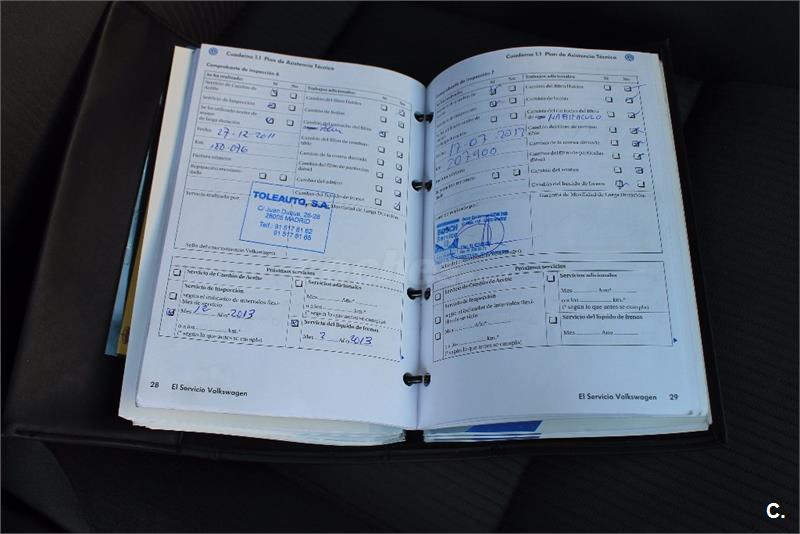 Cuaderno 1.1 Plan de Asistencia Técnica
Comprobante de inspección 6
Se ha realizado: Sí No
Trabajos adicionales: Sí No
Servicio de Cambio de Aceite
Servicio de Inspección
Se ha utilizado aceite de motor de larga duración
Fecha 27-12-2011
Km. 180.076
Factura número:
Cambio del filtro
Cambio de bujías
Cambio del cartucho del filtro
Cambio de la correa dentada
Cambio del filtro de partículas diésel
Cambio del aditivo
Cambio del líquido de frenos
Movilidad de Larga Duración
Servicio realizado por:
TOLEAUTO, S.A.
C/ Juan Duque, 26-28
28005 MADRID
Telf.: 91 517 81 62
91 517 81 65
Sello del concesionario Volkswagen
Próximos servicios
Servicio de Cambio de Aceite
Servicio de Inspección
según el indicador de intervalos flexibles de servicio
Mes 12 Año* 2013
o a los km.*
(* según lo que antes se cumpla)
Servicios adicionales
Mes Año*
o a los km.*
(* según lo que antes se cumpla)
Servicio del líquido de frenos
Mes 2 Año 2013
28 El Servicio Volkswagen
Cuaderno 1.1 Plan de Asistencia Técnica
Comprobante de inspección 7
Se ha realizado: Sí No
Trabajos adicionales: Sí No
Fecha
Km. 207900
Cambio de bujías
Cambio del cartucho del filtro
HABITACULO
Cambio de la correa dentada
Cambio del filtro de partículas diésel
Cambio del líquido de frenos
Garantía de Movilidad de Larga Duración
BOSCH
Service
Próximos servicios
Servicio de Cambio de Aceite
Servicio de Inspección
según el indicador de intervalos flexibles de servicio
Mes Año*
o a los km.*
(* según lo que antes se cumpla)
Servicios adicionales
Mes Año*
o a los km.*
(* según lo que antes se cumpla)
Servicio del líquido de frenos
Mes Año
El Servicio Volkswagen 29
C.